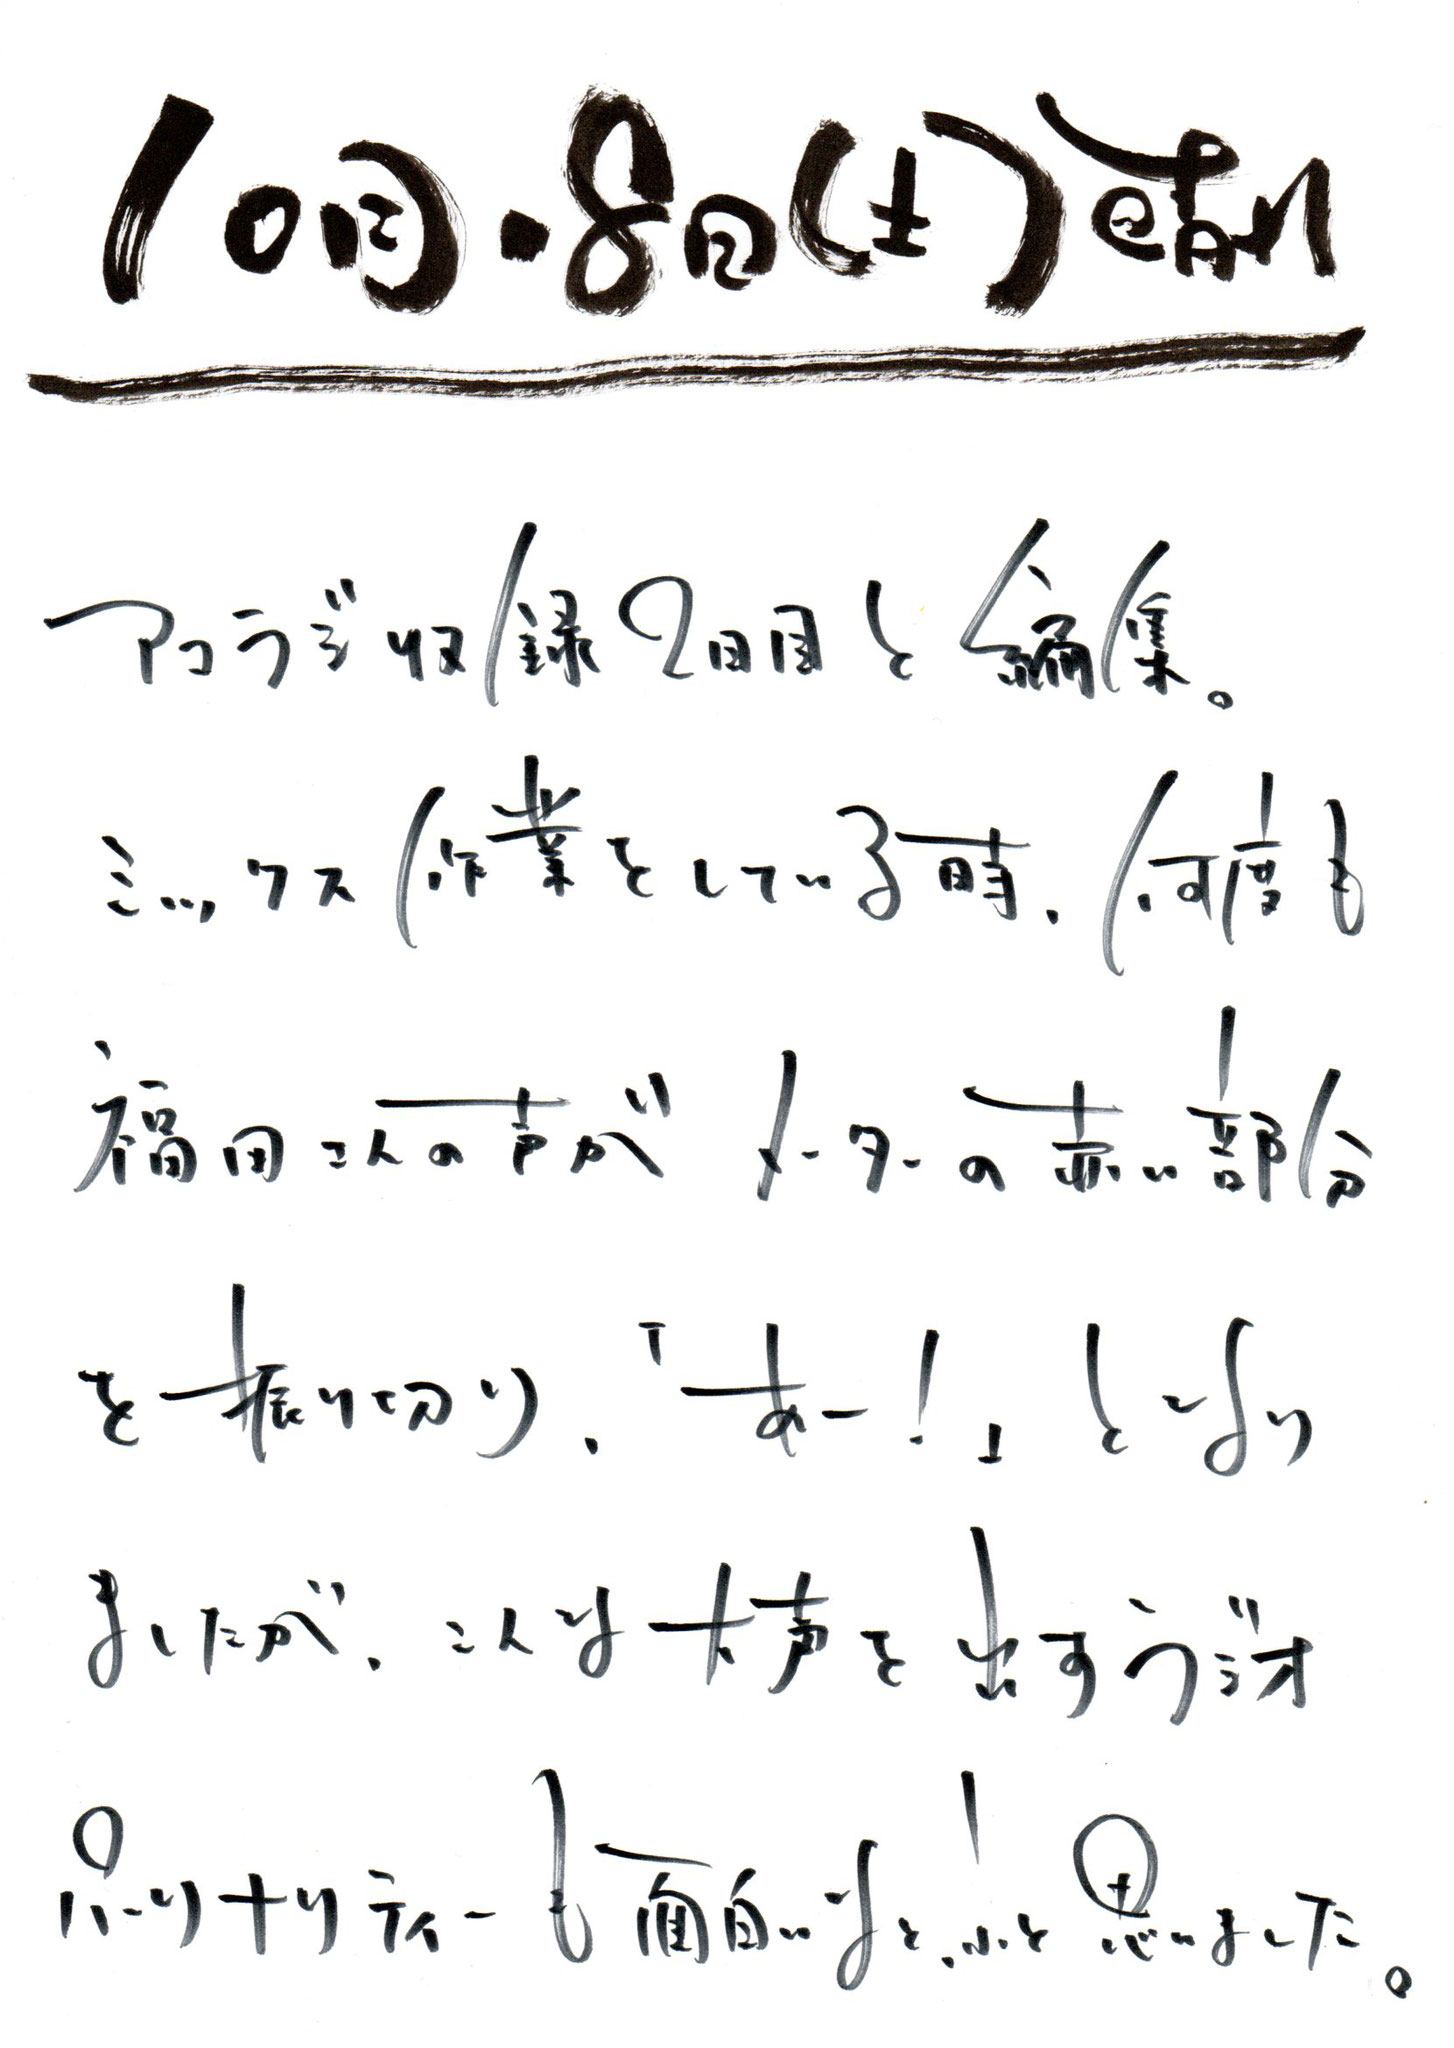 10月・8日(土)晴れ
アコラジ収録2日目と編集。
ミックス作業をしている時、何度も
福田さんの声がメーターの赤い部分
を振り切り、「あー!」となり
ましたが、こんな大声を出すラジオ
パーソナリティーも面白いなと、ふと思いました。